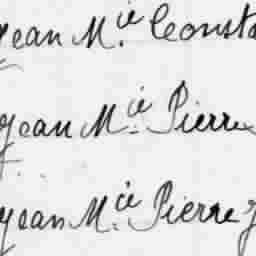 Jean M.cié Consta
Jean M.cié Pierre
Jean M.cié Pierre J